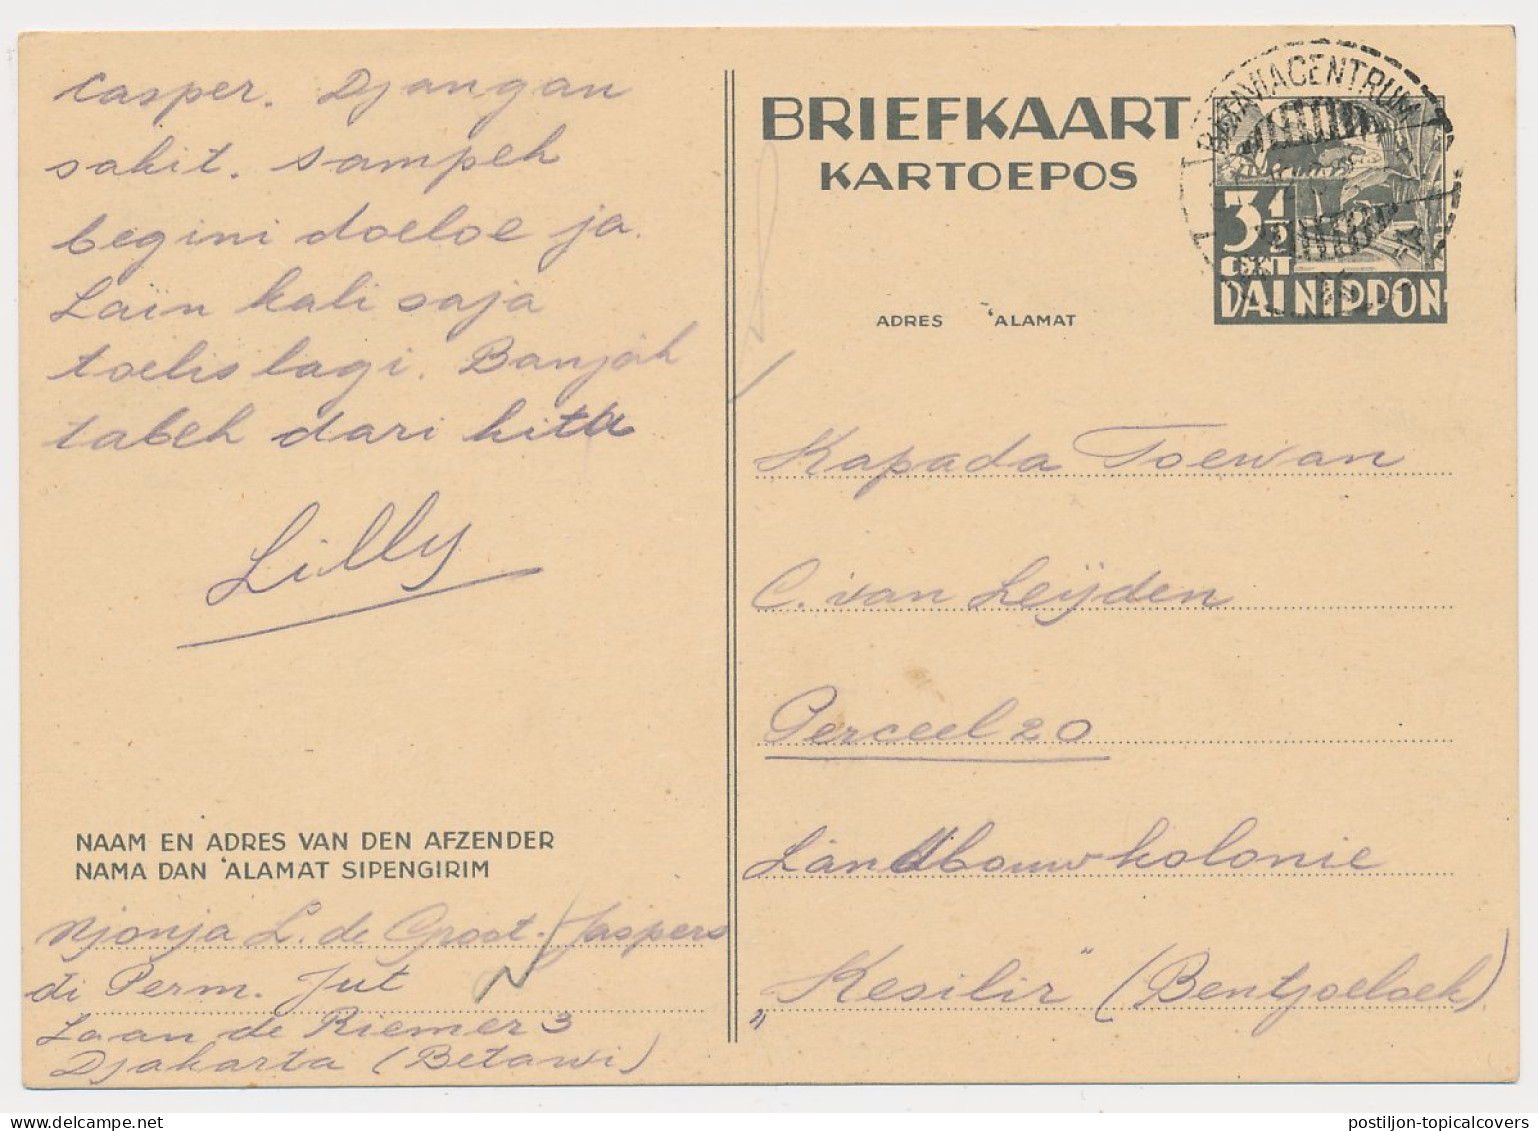 Casper. Djangan
sakit. Sampeh
begini doeloe ja.
Lain kali saja
toelis lagi. Banjak
tabeh dari kita
Lilly
NAAM EN ADRES VAN DEN AFZENDER
NAMA DAN 'ALAMAT SIPENGIRIM
Njonja L. de Groot-Jaspers
di Perm. Jut
Laan de Riemer 3
Djakarta (Betawi)
BRIEFKAART
KARTOEPOS
BATAVIACENTRUM
3½
CENT
DAI NIPPON
ADRES 'ALAMAT
Kapada Toewan
C. van Leijden
Perceel 20
Landbouwkolonie
„Kesilir" (Bentjoeloek)
postiljon-topicalcovers
delcampe.net